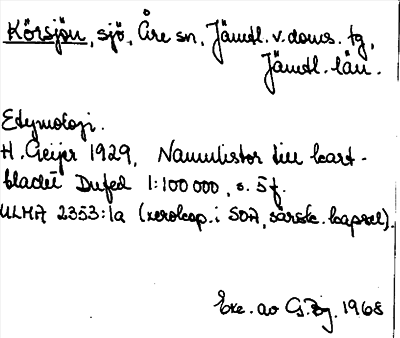 Körsjön, sjö, Åre sn, Jämtl. v. doms. tg,
Jämtl. län.
Etymologi.
H. Geijer 1929, Namnlistor till kart-
bladet Dufed 1:100 000, s. 5 f.
ULMA 2353:1a (xerokop. i SOA, särsk. kapsel).
Exc. av G. 1968